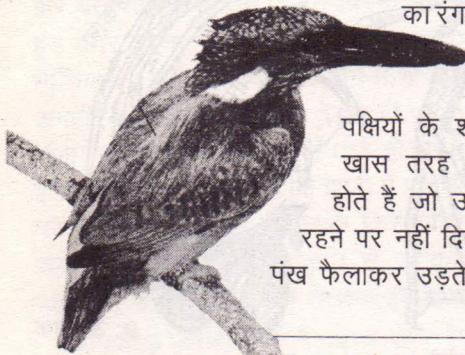 का रंग
पक्षियों के
खास तरह
होते हैं जो
रहने पर नहीं
पंख फैलाकर उड़ते